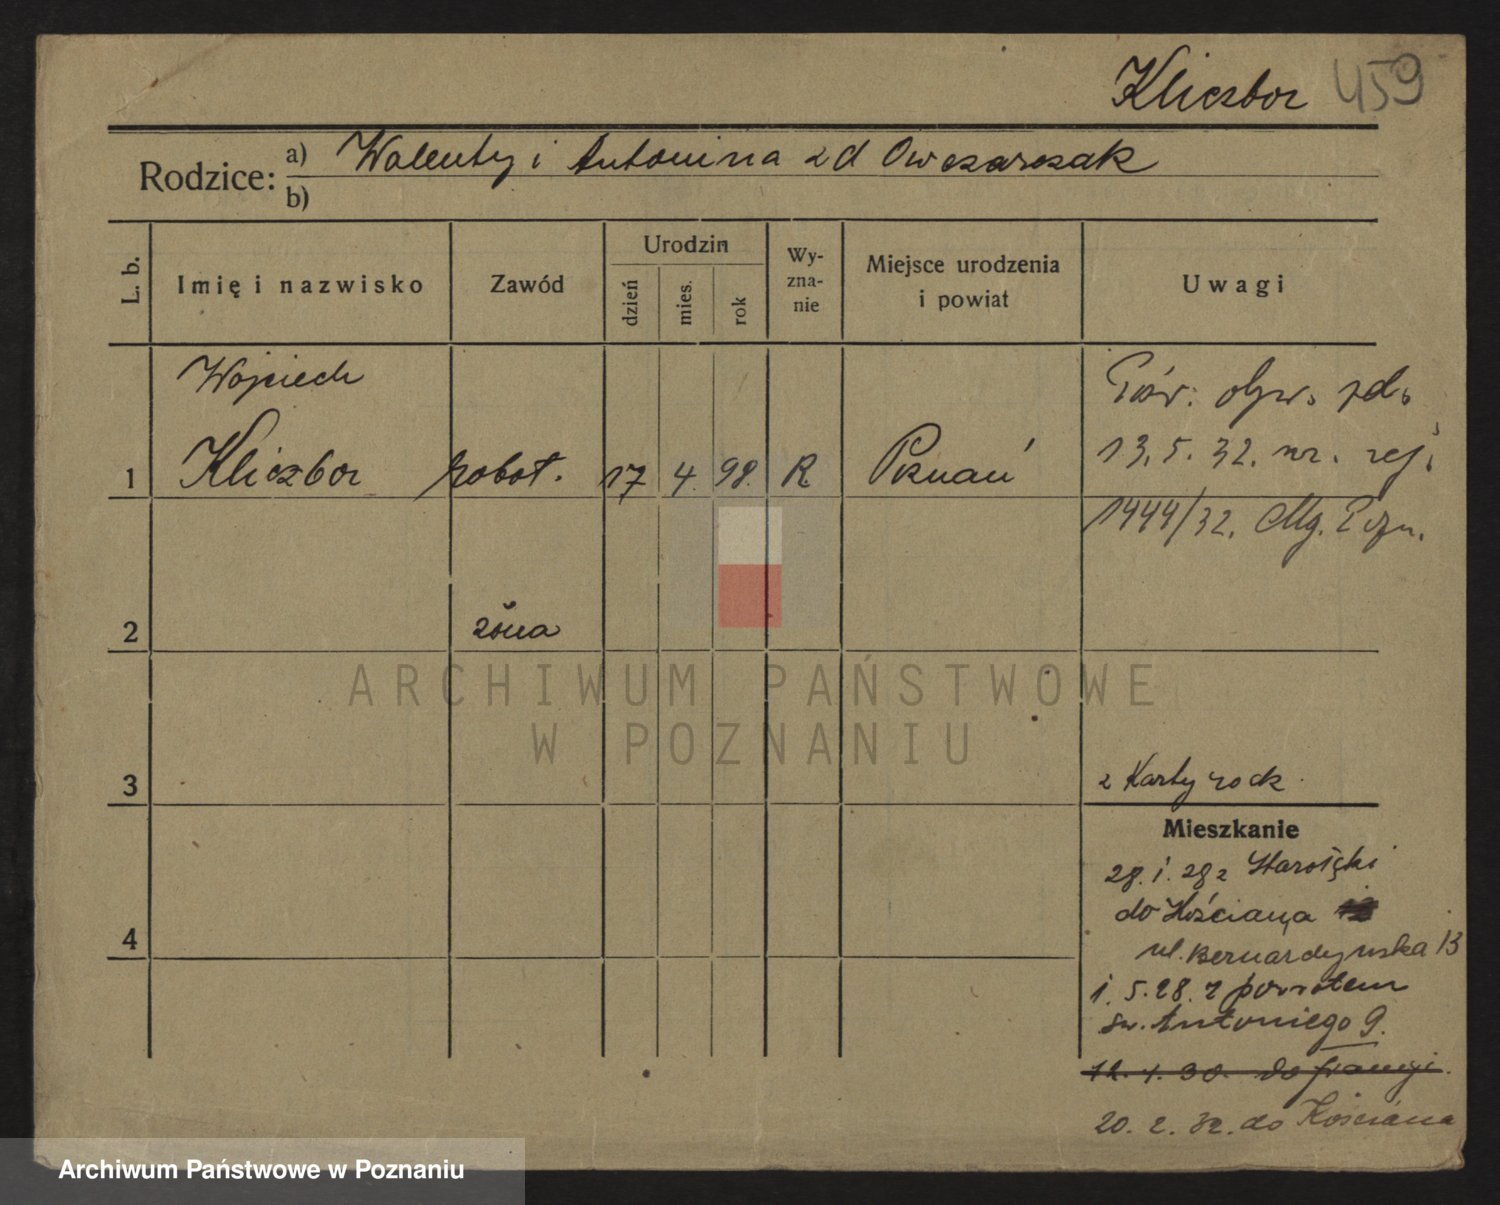 Kliczbor 459
Rodzice: a) Walenty i Antonina zd Owczarczak
b)
L. b.
Imię i nazwisko
Zawód
Urodzin
dzień
mies.
rok
Wy-
zna-
nie
Miejsce urodzenia
i powiat
Uwagi
Wojciech
1 Kliczbor robot. 17 4. 98. R Poznań
obyw.
13. 5. 32. nr. rej.
1444/32. Mg. Pozn.
2 żona
3
z Karty
Mieszkanie
28. 1. 28 z Starołęki
do Kościana
ul. Bernardyńska 13
1. 5. 28. z powrotem
św. Antoniego 9.
12. 4. 30. do francji.
20. 2. 32. do Kościana
4
ARCHIWUM PAŃSTWOWE
W POZNANIU
Archiwum Państwowe w Poznaniu